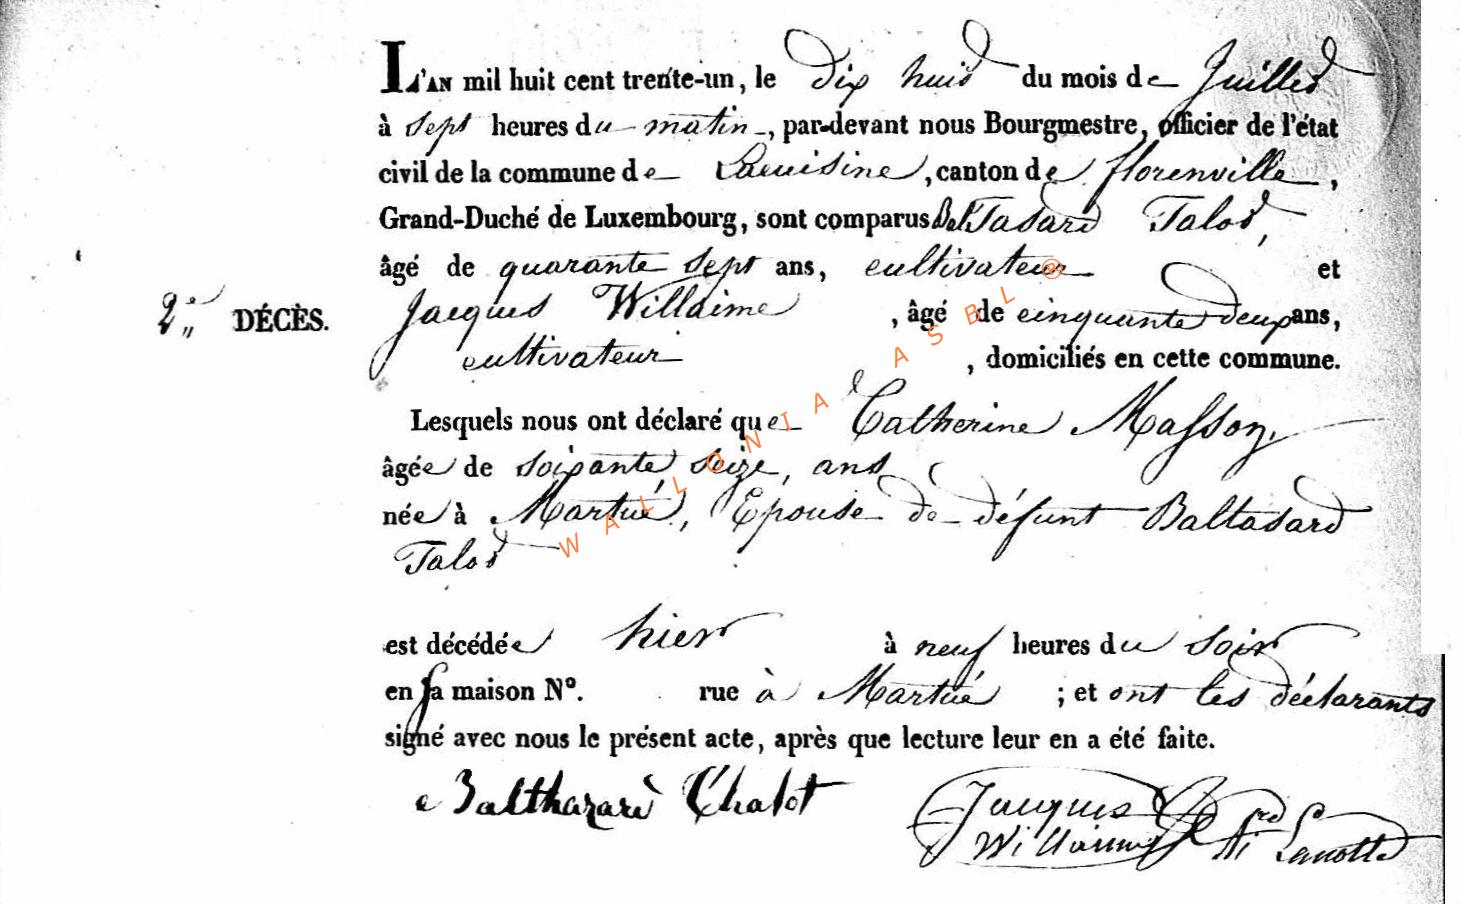 L'AN mil huit cent trente-un, le dix huit du mois de Juillet
à sept heures du matin, par-devant nous Bourgmestre, officier de l'état
civil de la commune de Lacuisine, canton de florenville,
Grand-Duché de Luxembourg, sont comparus Baltasard Talot,
âgé de quarante sept ans, cultivateur et
2e DÉCÈS.
Jacques Willaime, âgé de cinquante deux ans,
cultivateur, domiciliés en cette commune.
Lesquels nous ont déclaré que Catherine Masson,
âgée de soixante seize, ans
née à Martué, Epouse de défunt Baltasard
Talot
est décédée hier à neuf heures du soir
en sa maison N°. rue à Martué ; et ont les déclarants
signé avec nous le présent acte, après que lecture leur en a été faite.
Balthazard Chalot Jacques
Willaime Lanotte
WALLONIA ASBL ®